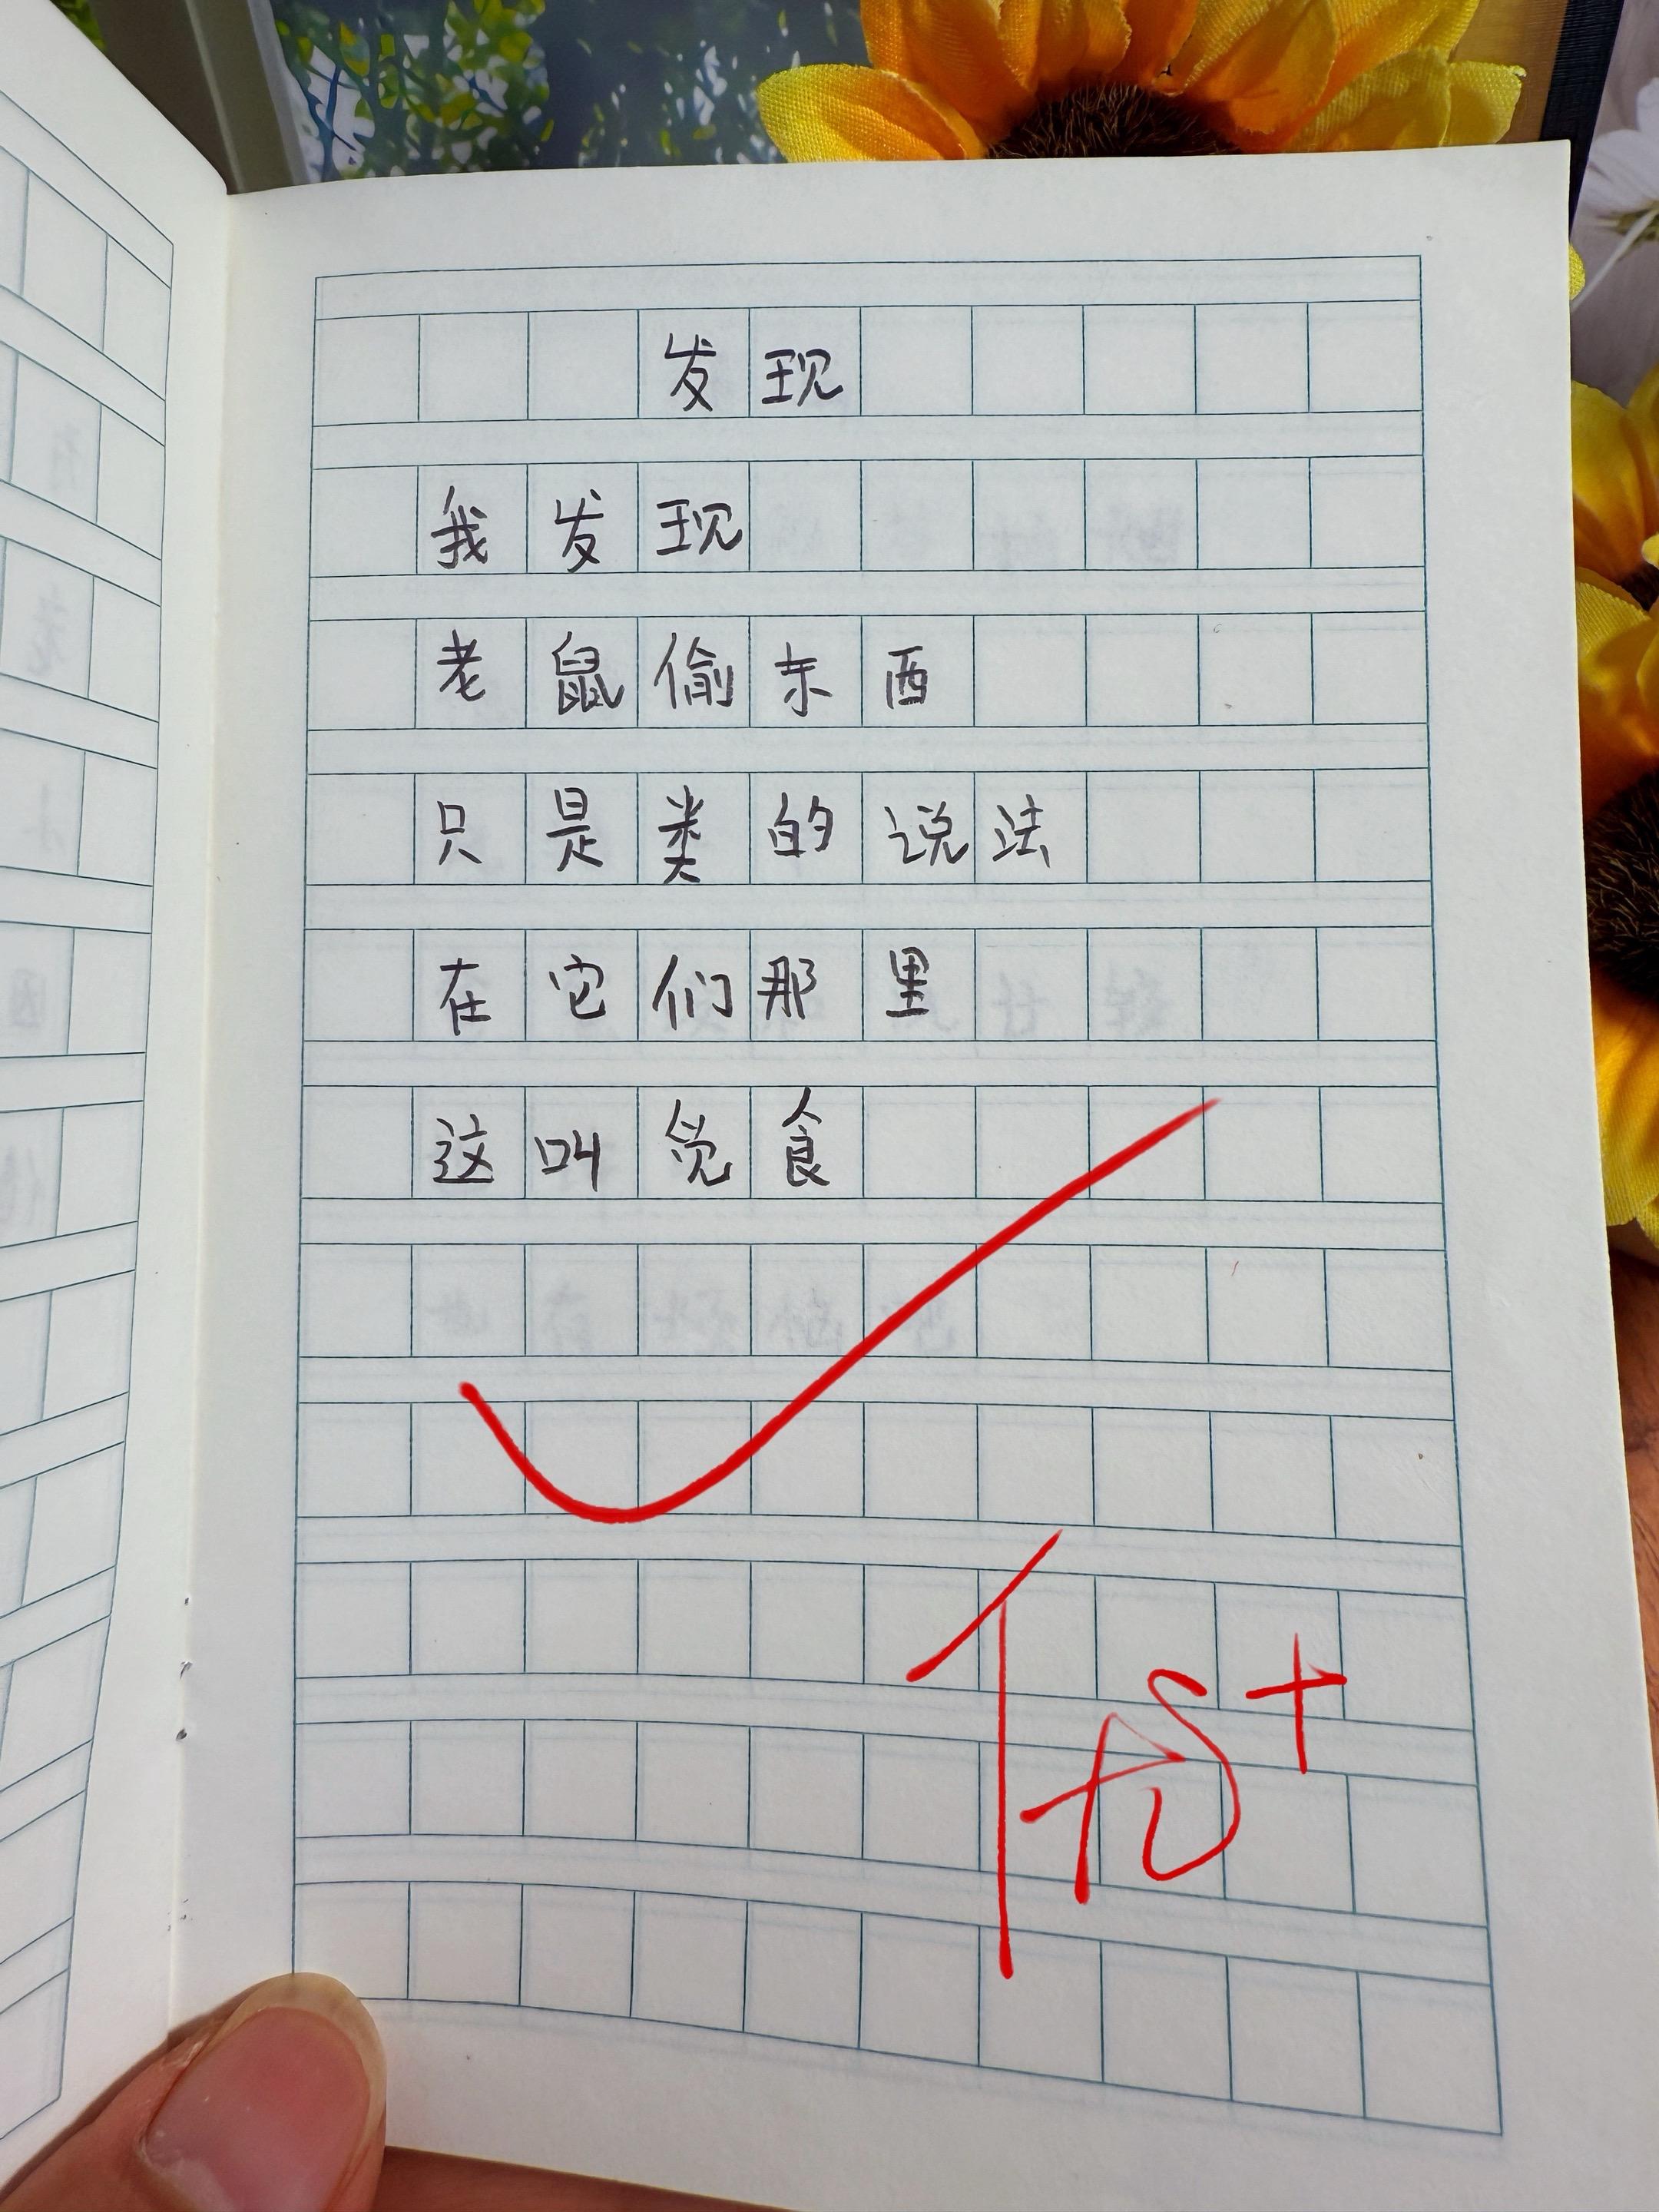 发现
我发现
老鼠偷东西
只是类的说法
在它们那里
这叫觅食
优+